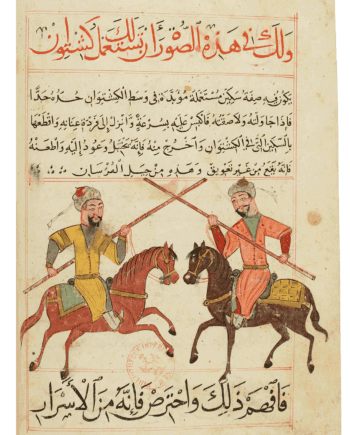 ولك في هذه الصور أن تستعمل كشتوان
يكون فيه صفة سكين مستعملة مؤبدة في وسط الكشتوان حده جدا
فإذا جاولته ولاصقته فاكبس عليه بسرعة وانزل إلى فردة عنانه واقطعها
بالسكين التي في الكشتوان واخرج منه فإنه يخبل وعود إليه واطعنه
فإنه يقع من غير تعويق وهذه من حيل الفرسان
فافهم ذلك واحترص فإنه من الأسرار